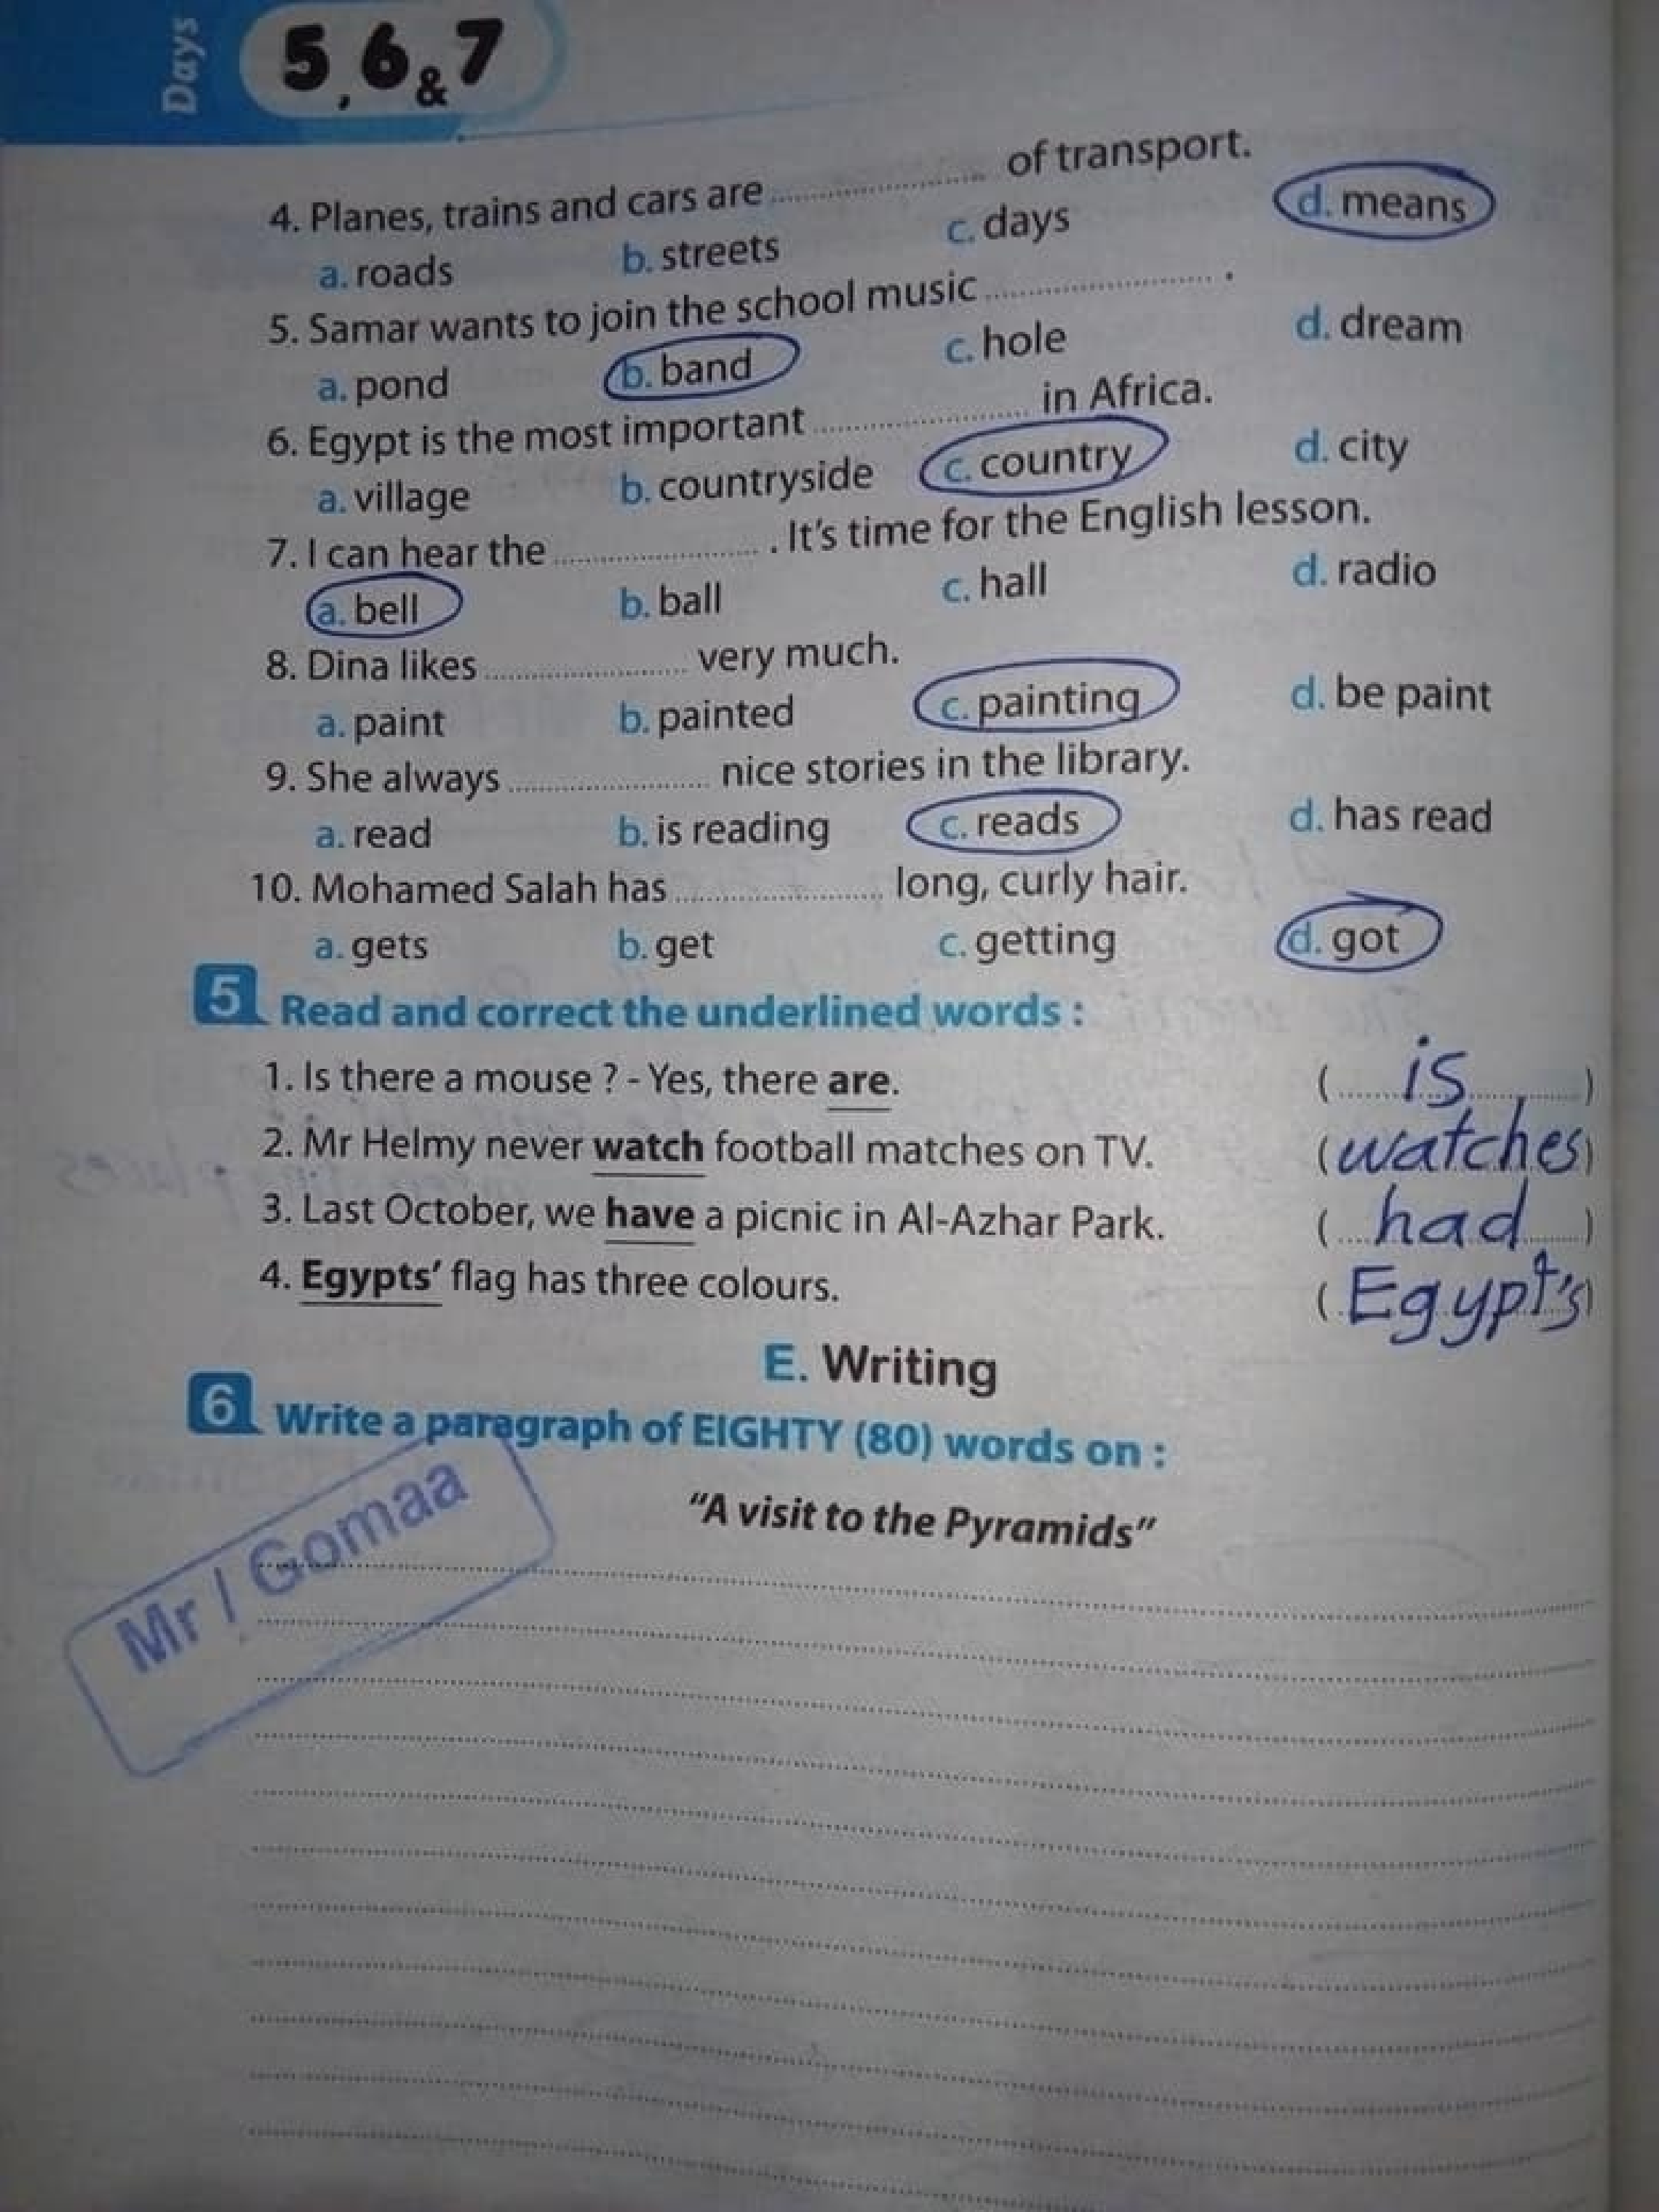 Days 5, 6 & 7
4. Planes, trains and cars are .................... of transport.
a. roads b. streets c. days d. means
5. Samar wants to join the school music .................... .
a. pond b. band c. hole d. dream
6. Egypt is the most important .................... in Africa.
a. village b. countryside c. country d. city
7. I can hear the .................... . It's time for the English lesson.
a. bell b. ball c. hall d. radio
8. Dina likes .................... very much.
a. paint b. painted c. painting d. be paint
9. She always .................... nice stories in the library.
a. read b. is reading c. reads d. has read
10. Mohamed Salah has .................... long, curly hair.
a. gets b. get c. getting d. got
5 Read and correct the underlined words :
1. Is there a mouse ? - Yes, there are. ( is )
2. Mr Helmy never watch football matches on TV. ( watches )
3. Last October, we have a picnic in Al-Azhar Park. ( had )
4. Egypts' flag has three colours. ( Egypt's )
E. Writing
6 Write a paragraph of EIGHTY (80) words on :
"A visit to the Pyramids"
Mr / Gomaa